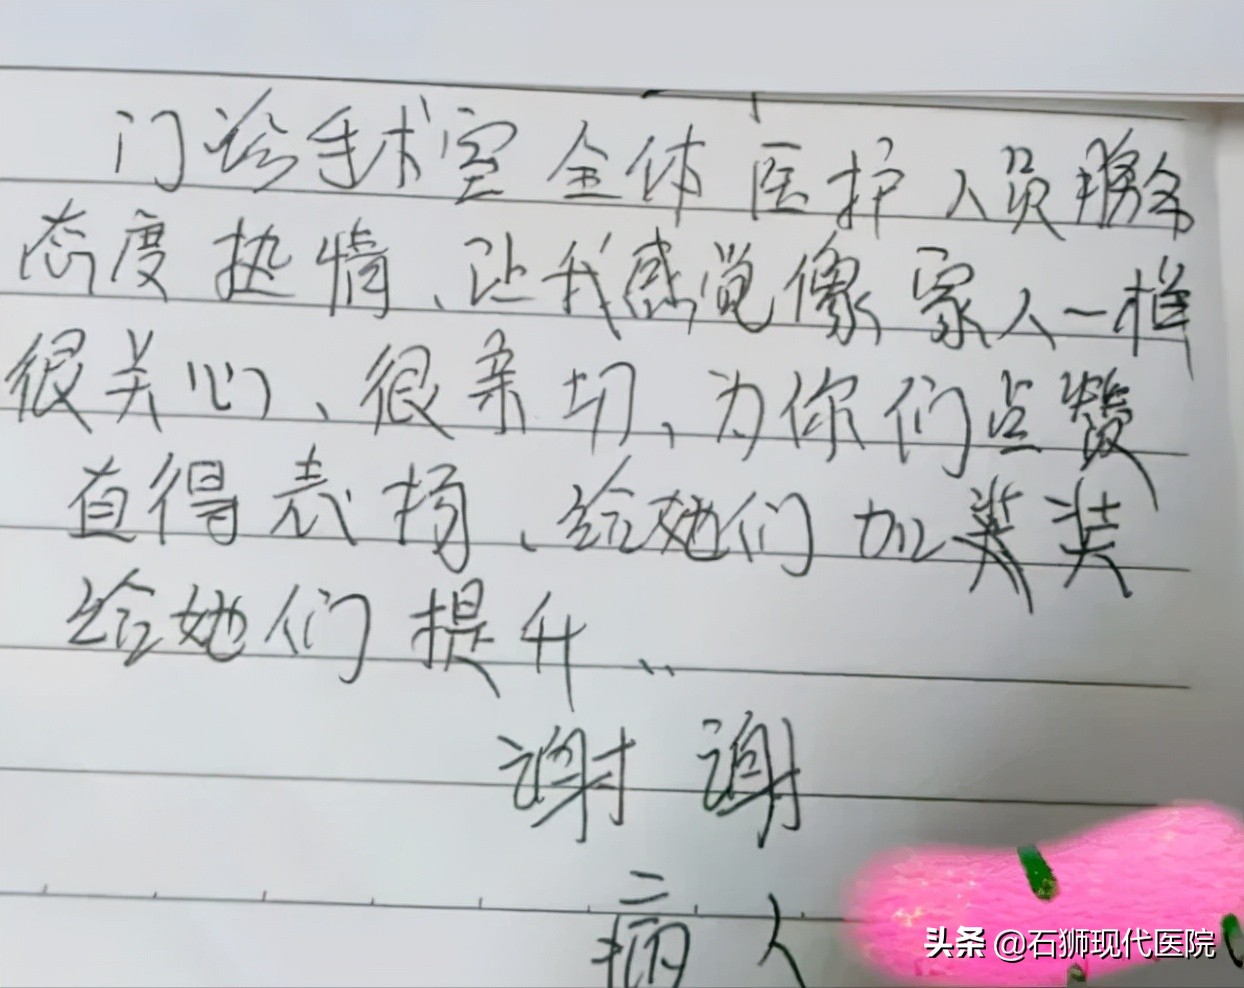 门诊手术室全体医护人员服务
态度热情、让我感觉像家人一样
很关心、很亲切、为你们点赞
值得表扬、给她们加奖装
给她们提升..
谢谢
病人
头条 @石狮现代医院